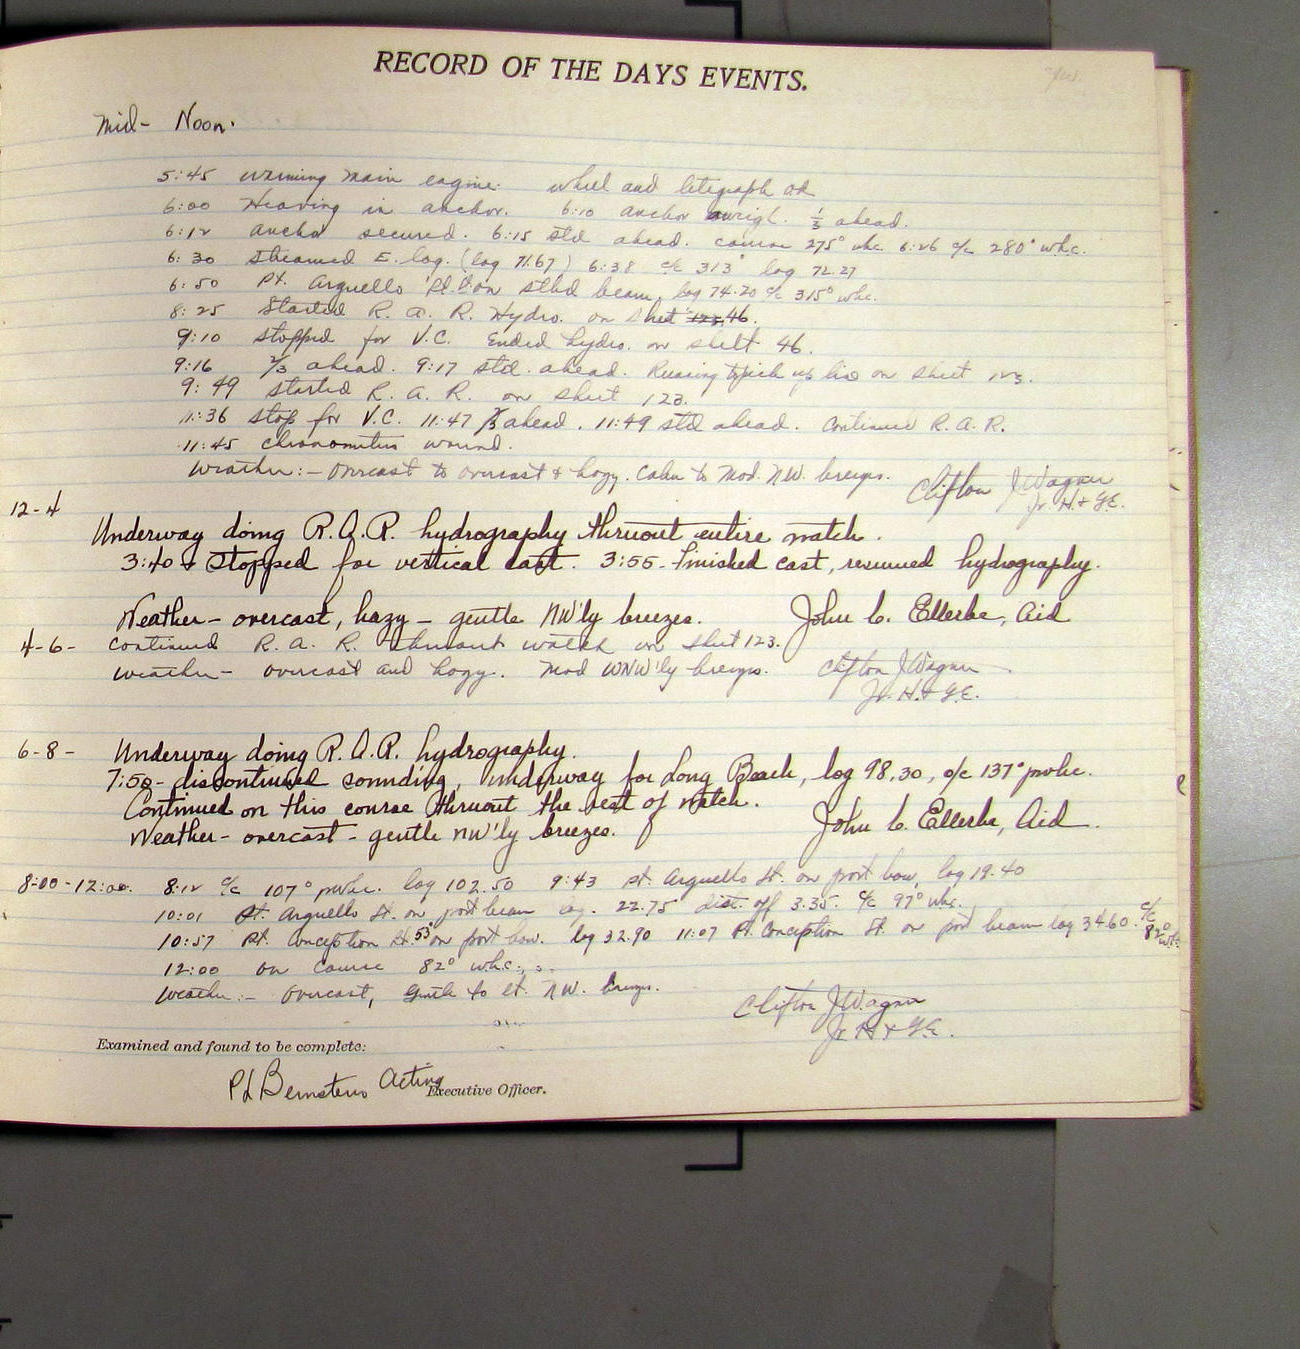 RECORD OF THE DAYS EVENTS.
Mid- Noon.
5:45 warming main engine. wheel and telegraph ok
6:00 Heaving in anchor. 6:10 anchor aweigh. 1/3 ahead.
6:12 anchor secured. 6:15 std ahead. course 275° whc 6:26 c/c 280° whc.
6:30 streamed E. log. (log 71.67) 6:38 c/c 313° log 72.27
6:50 Pt. Arguello Lt. on stbd beam, log 74.20 c/c 315° whc.
8:25 Started R. A. R. Hydro. on sheet 123. 46.
9:10 stopped for V.C. Ended hydro. on sheet 46.
9:16 2/3 ahead. 9:17 std. ahead. Running to pick up line on sheet 123.
9:49 started R. A. R. on sheet 123.
11:36 stop for V.C. 11:47 1/3 ahead. 11:49 std ahead. Continued R.A.R.
11:45 chronometers wound.
Weather:- Overcast to overcast & hazy. Calm to Mod. NW. breezes. Clifton J. Wagner
Jr. H. & G.E.
12-4
Underway doing R.A.R. hydrography thruout entire watch.
3:40 Stopped for vertical cast. 3:55 - Finished cast, resumed hydrography.
Weather - overcast, hazy - gentle NW'ly breezes. John C. Ellerbe, Aid
4-6- continued R. A. R. thruout watch on sheet 123.
weather- overcast and hazy. Mod WNW'ly breezes. Clifton J. Wagner
Jr. H. & G.E.
6-8- Underway doing R.A.R. hydrography.
7:50- discontinued sounding, underway for Long Beach, log 98.30, c/c 137° pwhc.
Continued on this course thruout the rest of watch.
Weather - overcast - gentle NW'ly breezes. John C. Ellerbe, Aid.
8:00-12:00. 8:12 c/c 107° pwhc. log 102.50 9:43 Pt. Arguello Lt. on port bow, log 19.40
10:01 Pt. Arguello Lt. on port beam log. 22.75 dist. off 3.35. c/c 97° whc.
10:57 Pt. Conception Lt. 53° on port bow. log 32.90 11:07 Pt. Conception Lt. on port beam log 34.60. c/c 82° whc.
12:00 on course 82° whc.
Weather:- Overcast, Gentle to lt. NW. breezes.
Clifton J. Wagner
Jr. H & G.E.
Examined and found to be complete:
P L Bernstein Acting
Executive Officer.